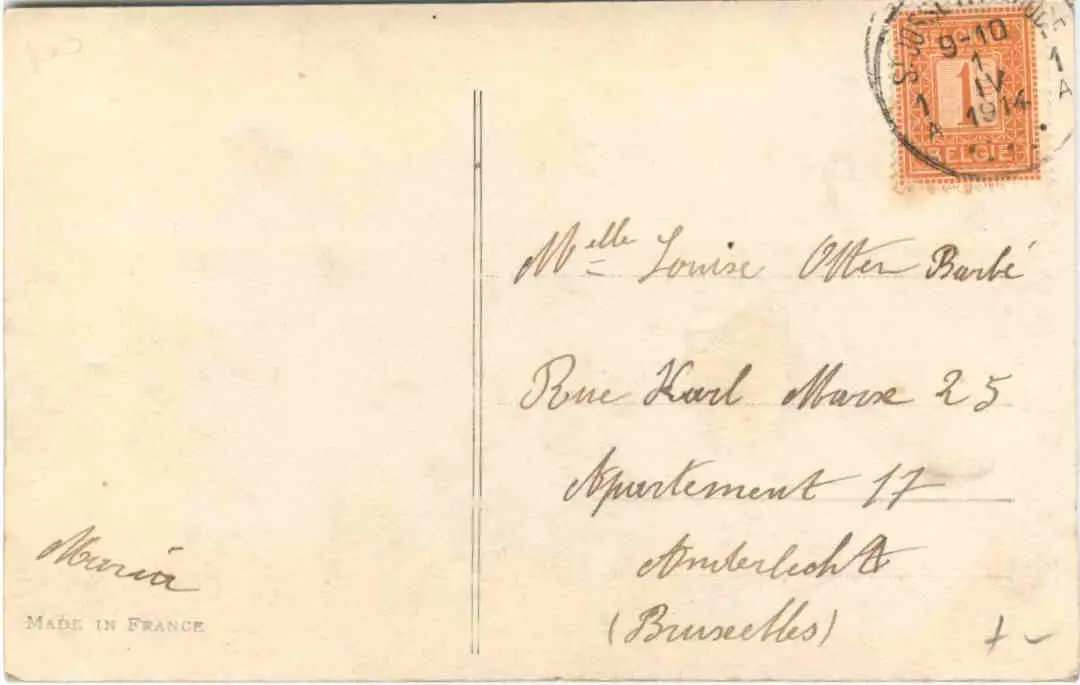 9-10
1
IV
1914
1
A
1
A
1
BELGIE
Melle Louise Otten Barbé
Rue Karl Marx 25
Apartement 17
Anderlecht
(Bruxelles)
Maria
MADE IN FRANCE